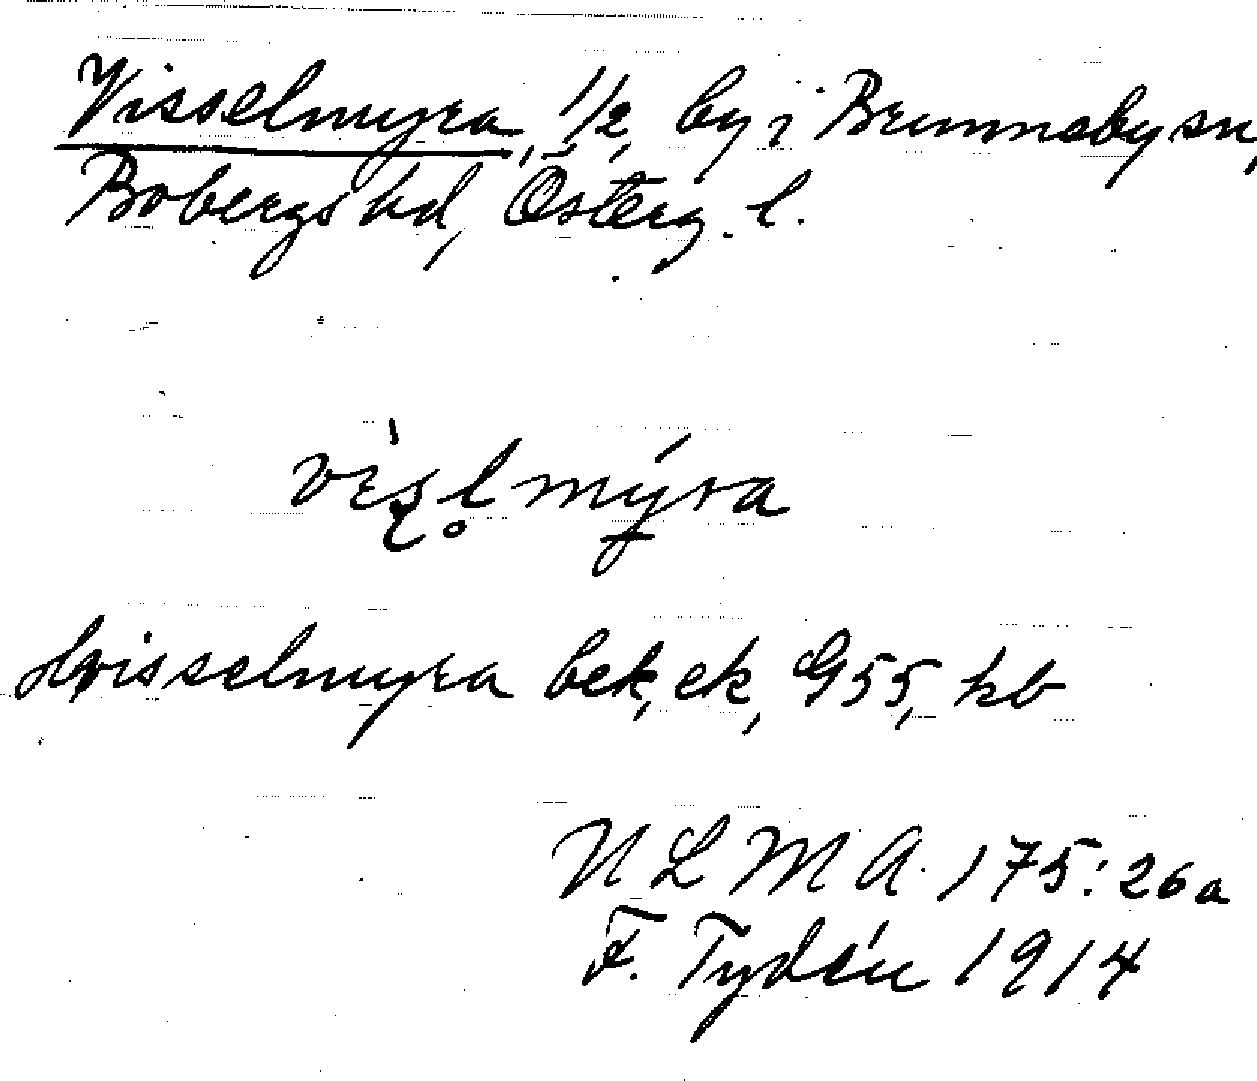 Visselmyra, 1/2, by i Brunneby sn,
Bobergs hd, Österg. l.
Hvisselmyra bek, ek, G55, kb
N L M A. 175:26a
F. Tydén 1914